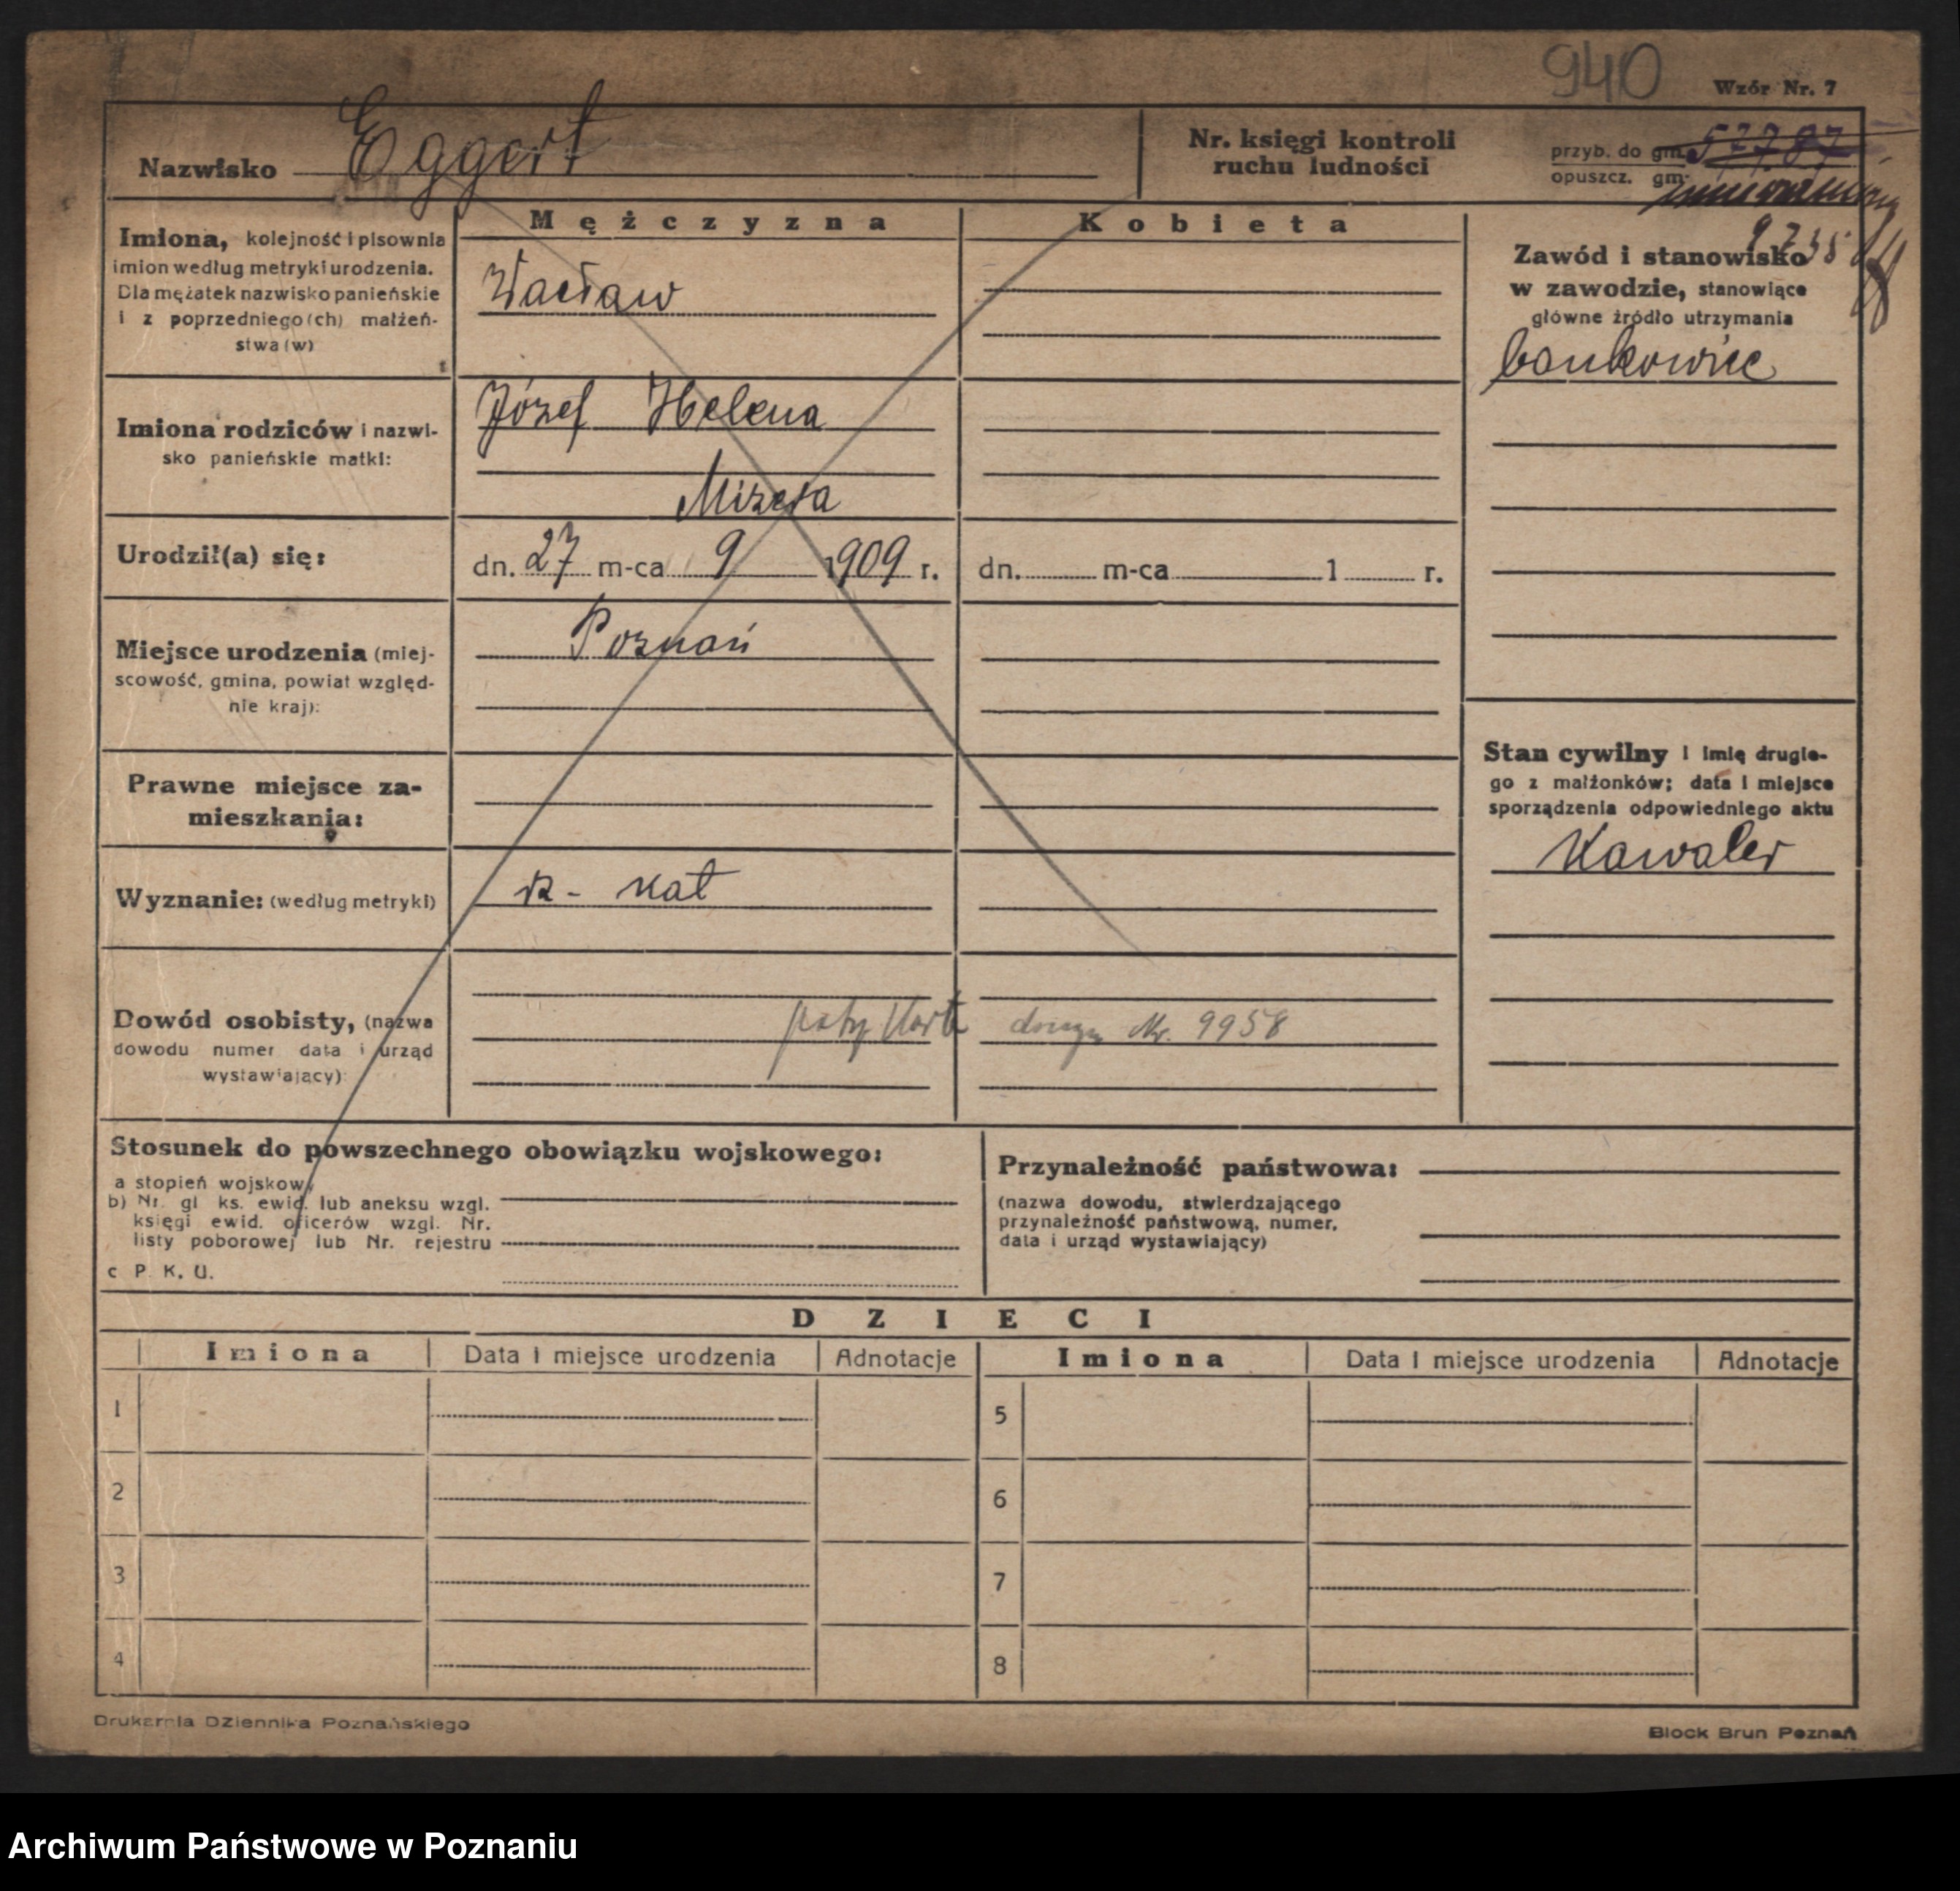 940
Wzór Nr. 7
Nazwisko Eggert
Nr. księgi kontroli
ruchu ludności
przyb. do gm. 57787
opuszcz. gm.
9735
Mężczyzna
Kobieta
Imiona, kolejność i pisownia
imion według metryki urodzenia.
Dla mężatek nazwisko panieńskie
i z poprzedniego(ch) małżeń-
stwa(w)
Wacław
Zawód i stanowisko
w zawodzie, stanowiące
główne źródło utrzymania
bankowiec
Imiona rodziców i nazwi-
sko panieńskie matki:
Józef Helena
Mizera
Urodził(a) się:
dn. 27 m-ca 9 1909 r.
dn. m-ca 1 r.
Miejsce urodzenia (miej-
scowość, gmina, powiat względ-
nie kraj):
Poznań
Prawne miejsce za-
mieszkania:
Stan cywilny i imię drugie-
go z małżonków; data i miejsce
sporządzenia odpowiedniego aktu
Kawaler
Wyznanie: (według metryki)
R - kat
Dowód osobisty, (nazwa
dowodu numer data i urząd
wystawiający):
Nr. 9958
Stosunek do powszechnego obowiązku wojskowego:
a stopień wojskowy
b) Nr. gl ks. ewid. lub aneksu wzgl.
księgi ewid. oficerów wzgl. Nr.
listy poborowej lub Nr. rejestru
c P. K. U.
Przynależność państwowa:
(nazwa dowodu, stwierdzającego
przynależność państwową, numer,
data i urząd wystawiający)
DZIECI
Imiona Data i miejsce urodzenia Adnotacje Imiona Data i miejsce urodzenia Adnotacje
1 5
2 6
3 7
4 8
Drukarnia Dziennika Poznańskiego
Block Brun Poznań
Archiwum Państwowe w Poznaniu